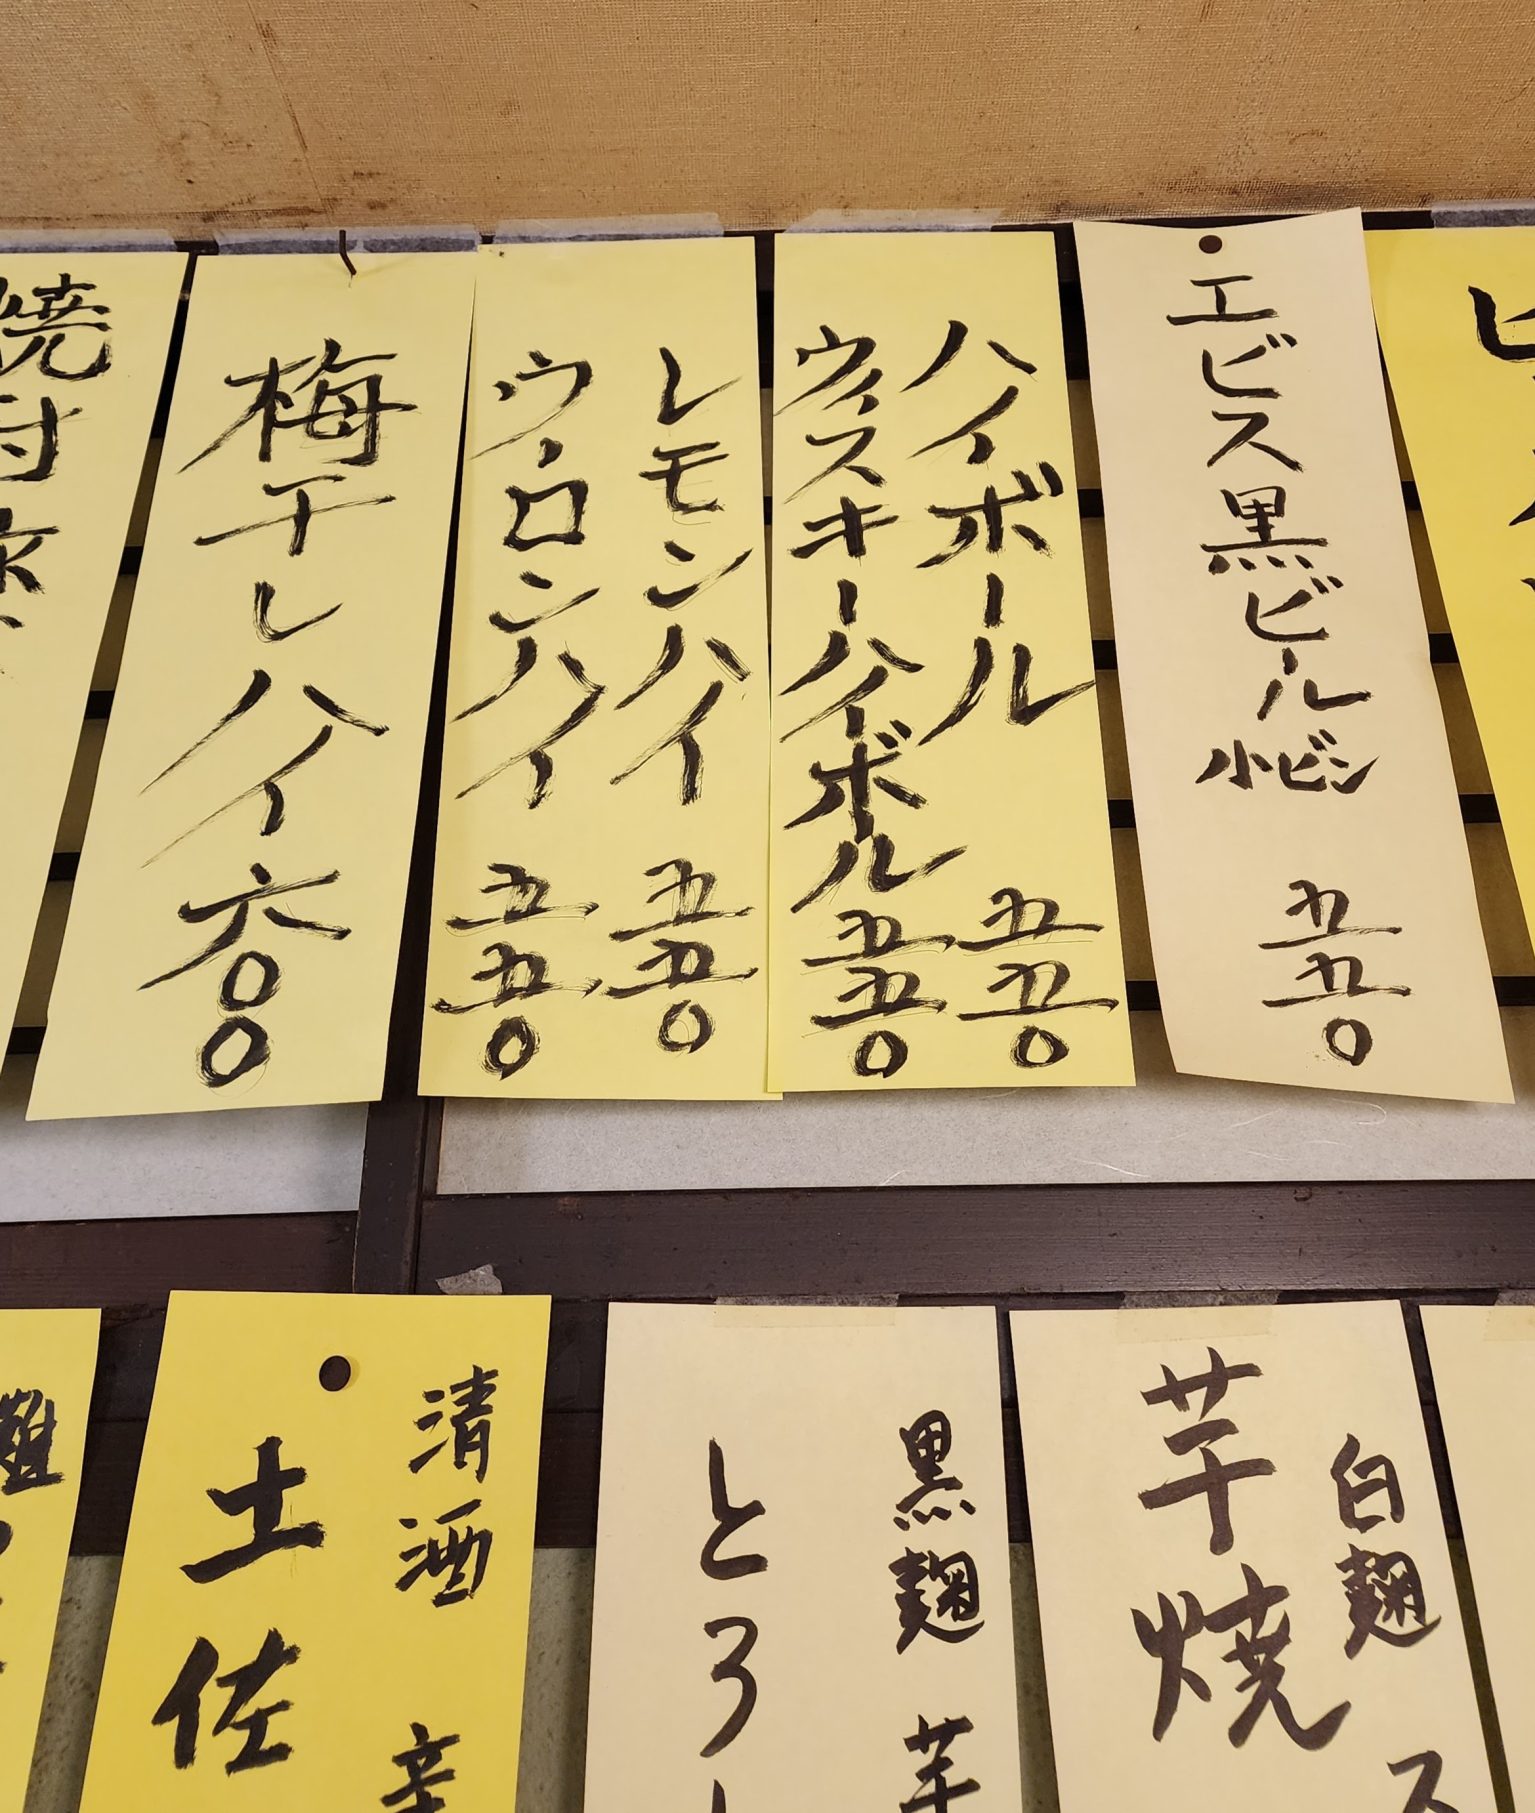 エビス黒ビール 小ビン 五五〇
ハイボール 五五〇
ウィスキーハイボール 五五〇
レモンハイ 五五〇
ウーロンハイ 五五〇
梅干しハイ 六〇〇
焼酎
白麹 ス
芋焼
黒麹 芋
とろ
清酒 辛
土佐